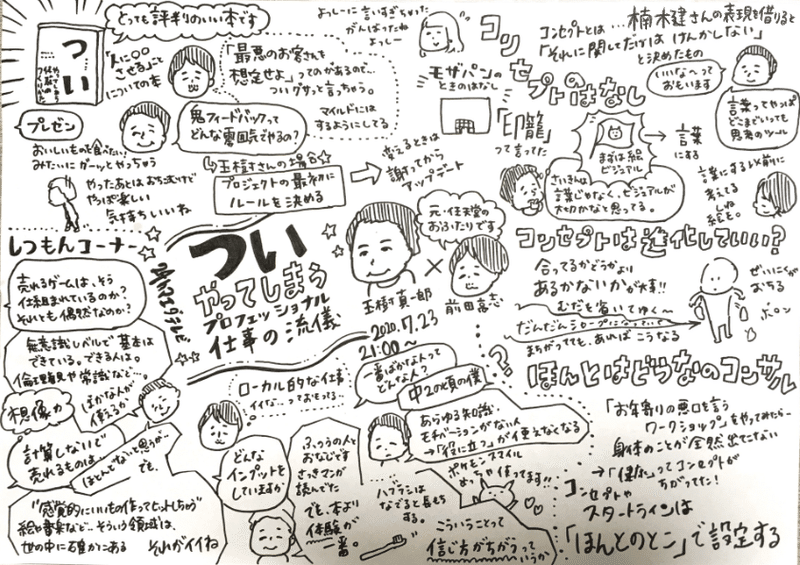 とっても評判のいい本です
つい
「人に○○
させる」こと
についての本
「最悪のお客さんを
想定せよ」ってのがあるので…
ついグサッと言っちゃう。
マイルドには
するようにしてる
よっしーに言いすぎちゃった
がんばったね
よっしー
鬼フィードバックって
どんな雰囲気でやるの?
プレゼン
おいしいもの食べたい
みたいにガーッとやっちゃう
やったあとはおちこむけど
やっぱ楽しい
気持ちいいね
玉樹さんの場合☆
プロジェクトの最初に
ルールを決める
変えるときは
謝ってから
アップデート
コンセプトのはなし
コンセプトとは…
楠木建さんの表現を借りると
「それに関してだけは けんかしない」
と決めたもの
いいな〜って
おもいます
モザパンの
ときのはなし
「印籠」
って言ってた
まずは絵
ビジュアル
言葉
にする
言葉ってやっぱ
どこまでいっても
思考のツール
さいきんは
言葉じゃなく、ビジュアルが
大切かなと思ってる。
言葉にする以前に
考えてる
しね
絵も。
コンセプトは進化していい?
合ってるかどうかより
あるかないかが大事!!
むだを省いてゆく〜
だんだんシャープになっていて
まちがってても、あればこうなる
ぜいにくが
おちる
ボーン
ついやってしまう
プロフェッショナル
仕事の流儀
元・任天堂の
おふたりです
玉樹真一郎
×
前田高志
2020.7.23
21:00〜
しつもんコーナー
売れるゲームは、そう
仕組まれているのか?
それとも偶然なのか?
無意識レベルで 基本は
できている。できる人は。
倫理観や常識など…。
想像力
ばかな人が
使えるか
計算しないで
売れるものは…
ほとんどないと思うが…
でも、
"感覚的にいいもの作ってヒットしちゃう"
絵や音楽など…そういう領域は、
世の中に確かにある
それがイイね
ローカル的な仕事
イイな…っておもってる…
どんな
インプットを
していますか
ふつうの人と
おなじです
さっきマンガ
読んでた
でも、本より
体験が
一番。
一番ばかな人って
どんな人?
?
中2の頃の僕
あらゆる知識
モチベーションがない人
→「役に立つ」が使えなくなる
ポケモンスマイル
めっちゃ使ってます!!
ハブラシは
なでると長もち
する。
こういうことって
信じ方がちがうって
いうか
ほんとはどうなのコンサル
「お年寄りの悪口を言う
ワークショップ」をやってみたら…
身体のことが全然出てこない
→「健体」ってコンセプトが
ちがってた!
コンセプトや
スタートラインは
「ほんとのとこ」で設定する